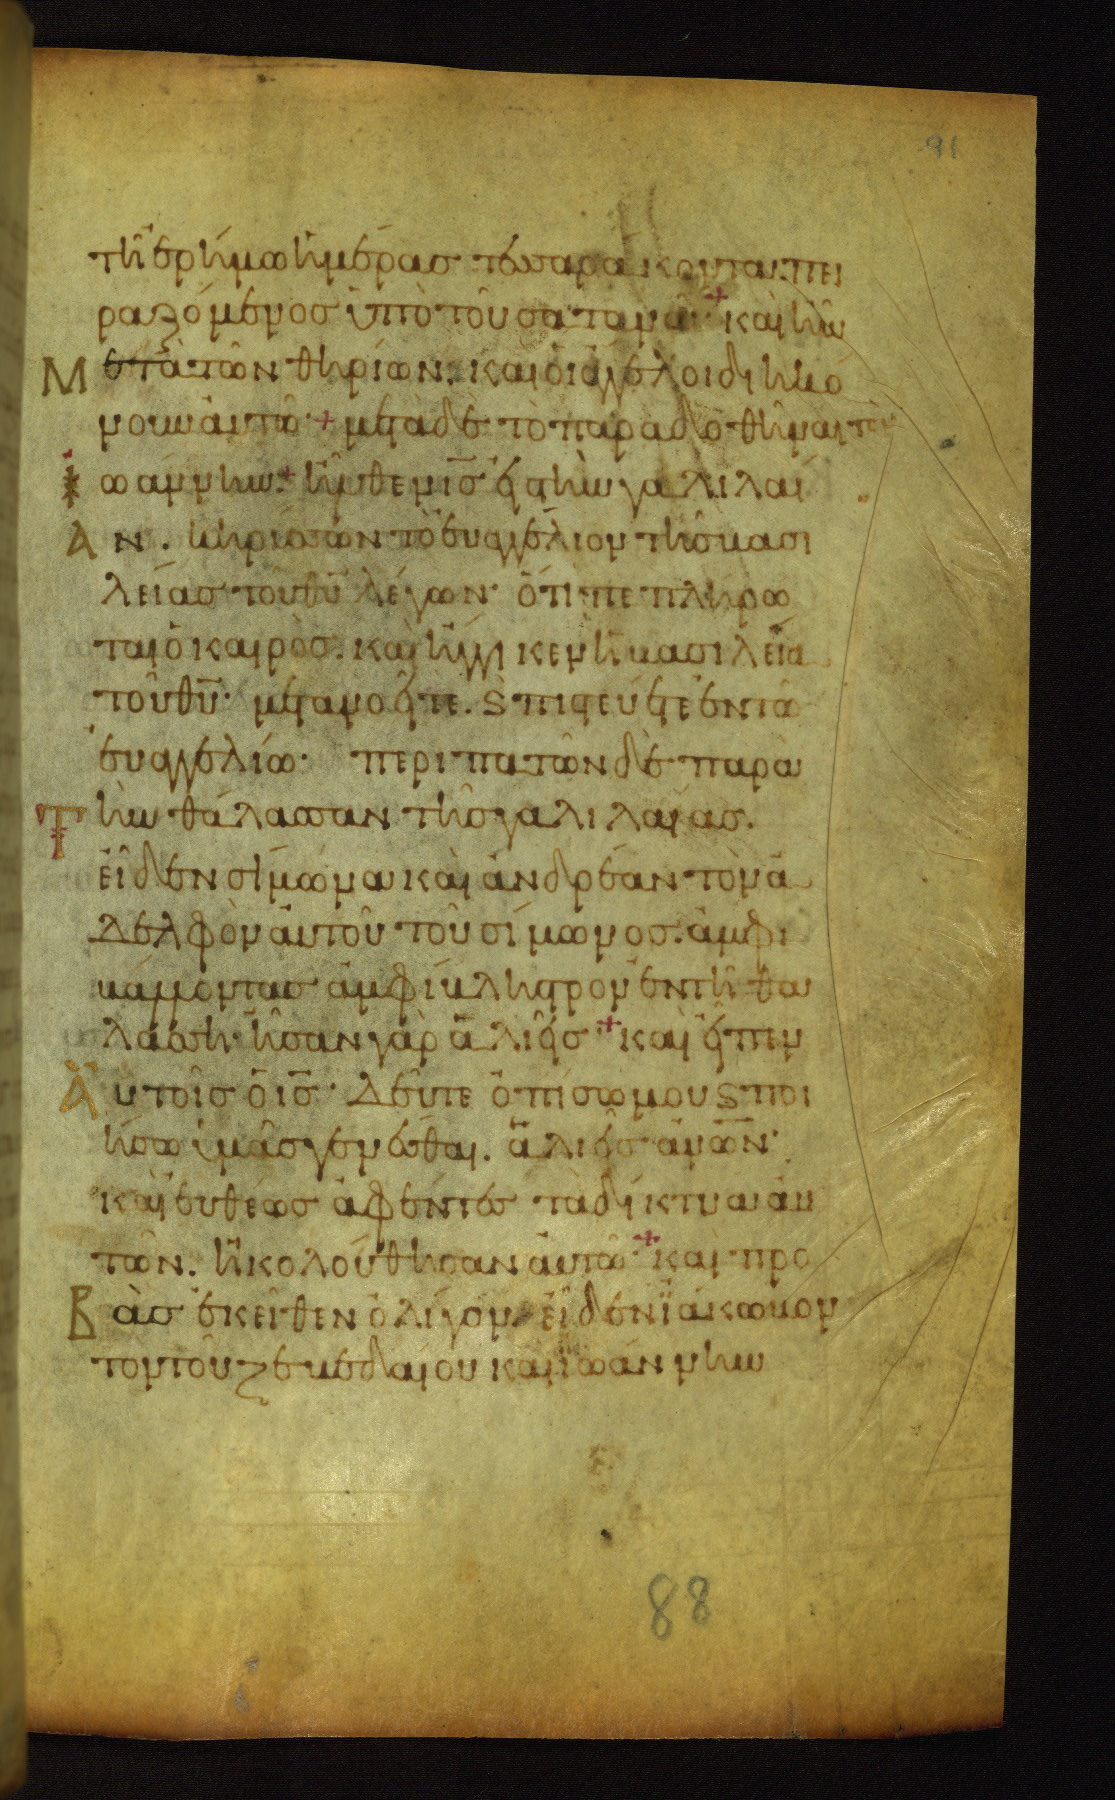 91
τῆ ἐρήμω ἡμέρας τεσσαράκοντα· πει
ραζόμενος ὑπὸ τοῦ σατανᾶ· + καὶ ἦν
Μ ετὰ τῶν θηρίων. καὶ οἱ ἄγγελοι διηκό
νουν αὐτῶ + μετὰ δὲ τὸ παραδοθῆναι τὸν
Ἰ ωάννην. + ἦλθεν ὁ ις εἰς τὴν γαλιλαί
Α ν. κηρύσσων τὸ εὐαγγέλιον τῆς βασι
λείας τοῦ θυ λέγων· ὅτι πεπλήρω
ται ὁ καιρὸς. καὶ ἤγγικεν ἡ βασιλεία
τοῦ θυ· μετανοεῖτε. ϗ πιστεύετε ἐν τῶ
εὐαγγελίω· περιπατῶν δὲ παρὰ
Τ ὴν θάλασσαν τῆς γαλιλαίας.
εἶδεν σίμωνα καὶ ἀνδρέαν τὸν ἀ
δελφὸν αὐτοῦ τοῦ σίμωνος. ἀμφι
βάλλοντας ἀμφίβληστρον ἐν τῆ θα
λάσση· ἦσαν γὰρ ἁλιεῖς + καὶ εἶπεν
Α ὐτοῖς ὁ ις· δεῦτε ὀπίσω μου ϗ ποι
ήσω ὑμᾶς γενέσθαι. ἁλιεῖς ανων·
καὶ εὐθέως ἀφέντες τὰ δίκτυα αὐ
τῶν. ἠκολούθησαν αὐτῶ· + καὶ προ
Β ὰς ἐκεῖθεν ὀλίγον, εἶδεν ϊάκωβον
τὸν τοῦ ζεβεδαίου καὶ ϊωάννην
88